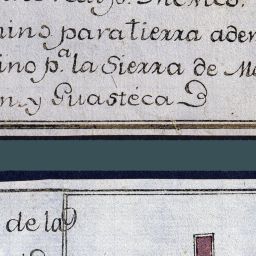 Mexico.
mino para tierra aden
ino p.ª la Sierra de Me
y Guasteca
de la